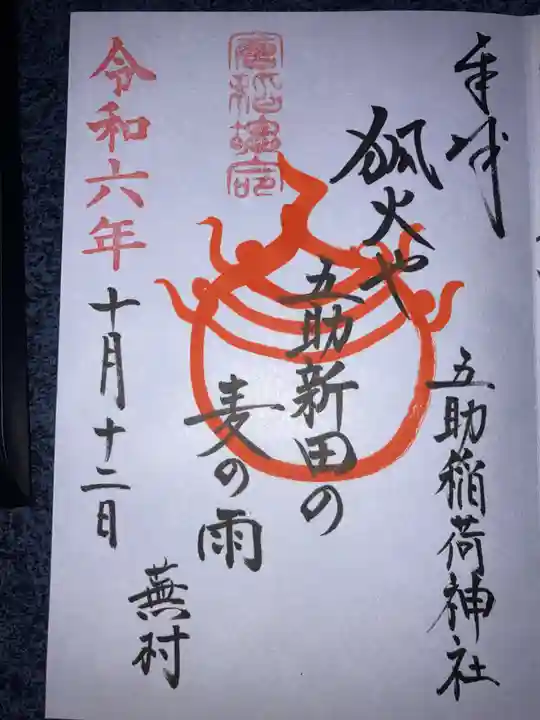 奉拝
五助稲荷神社
狐火や
五助新田の
麦の雨
蕪村
令和六年
十月十二日